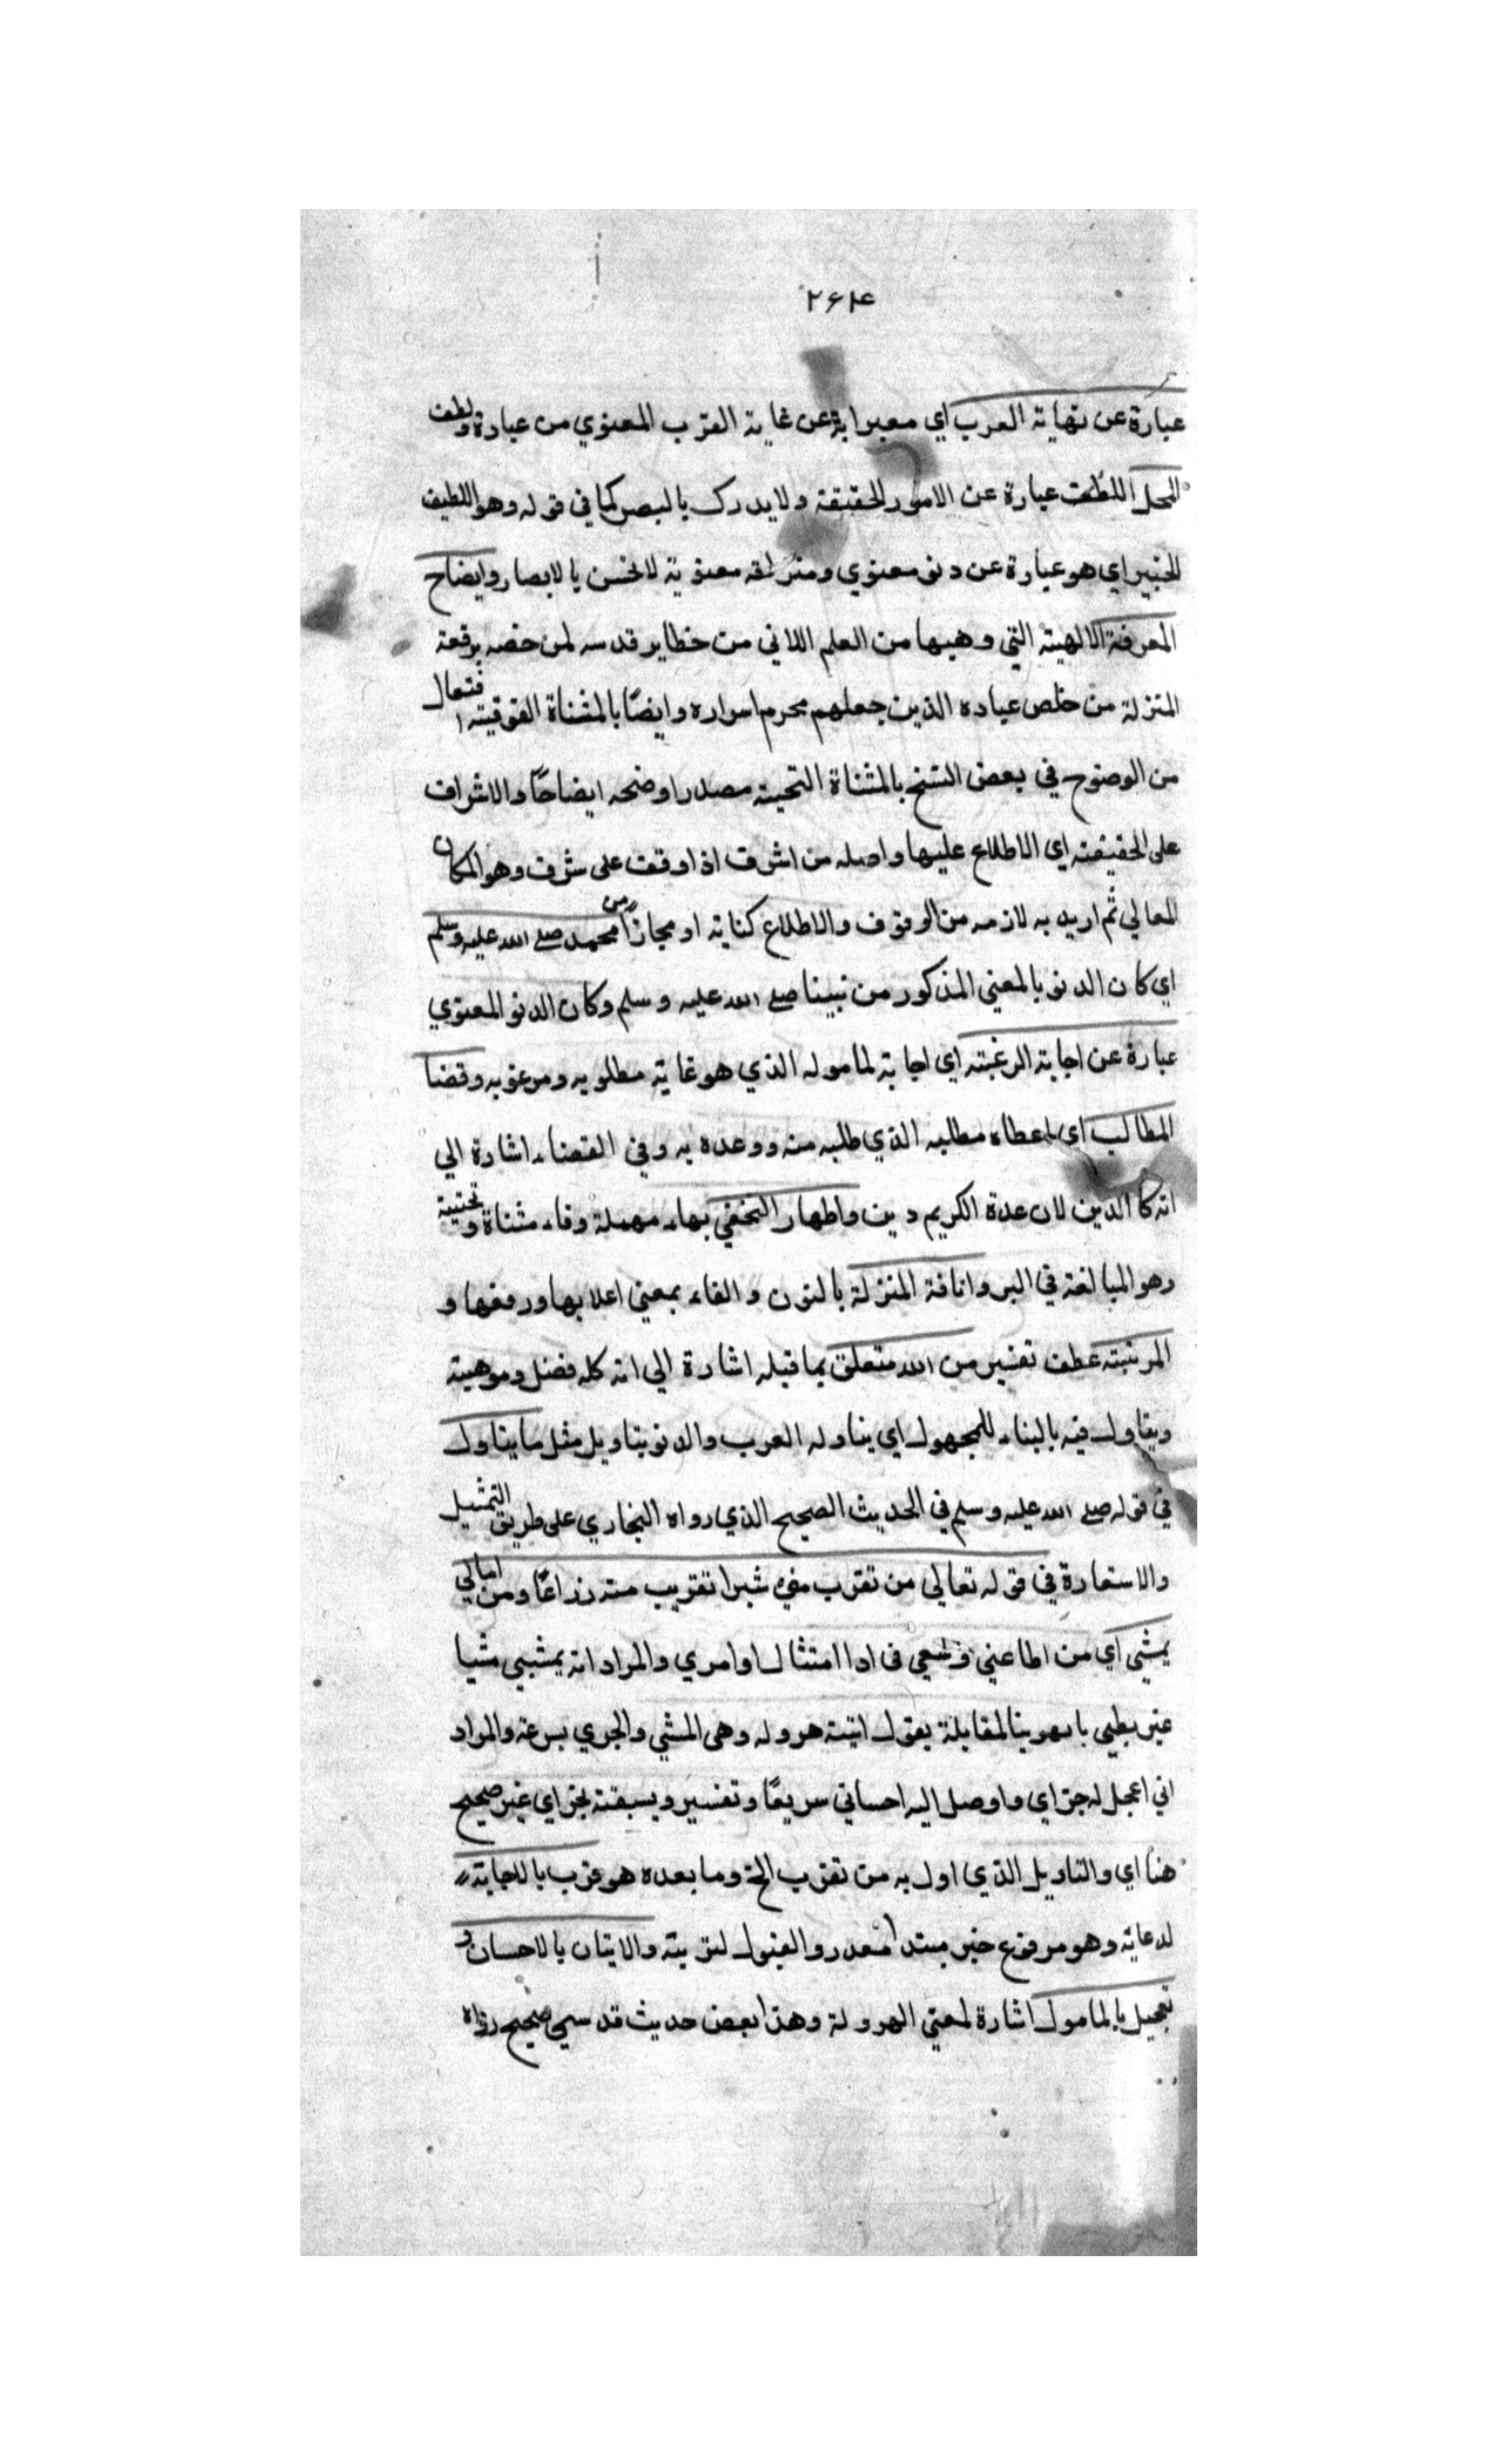 ۲۶۴
عبارة عن نهاية القرب اي معبرا به عن غاية القرب المعنوي من عبادة ولطف
المحل اللطف عبارة عن الامور الحقيقة ولا يدرك بالبصر كما في قوله وهو اللطيف
الخبير اي هو عبارة عن دنو معنوي ومنزلة معنوية لا تحس بالابصار وايضاح
المعرفة الالهية التي وهبها من العلم اللاني من خطاير قدسه لمن خصه برفعة
المنزلة من خلص عباده الذين جعلهم محرم اسراره وايضًا بالمثناة الفوقيته افتعال
من الوضوح في بعض النسخ بالمثناة التحيته مصدر اوضحه ايضاحًا والاشراف
على الحقيقته اي الاطلاع عليها واصله من اشرف اذا وقف على شرف وهو المكان
المعالي ثم اريد به لازمه من الوقوف والاطلاع كناية او مجازًا من محمد صلى الله عليه وسلم
اي كان الدنو بالمعني المذكور من نبينا صلى الله عليه وسلم وكان الدنو المعنوي
عبارة عن اجابة الرغبته اي اجابة لمامولـه الذي هو غاية مطلوبه ومرغوبه وقضا
المطالب اي اعطاه مطالبه الذي طلبه منه ووعده به وفي القضاء اشارة الي
انه كا الدين لان عدة الكريم دين واظهار التحفي بهاء مهملة وفاء مثناة و تحتية
وهو المبالغة في البر وانافة المنزلة بالنون والفاء بمعني اعلابها ورفعها و
المرتبته عطف تفسير من الله متعلق بما قبله اشارة الي انه كله فضل وموهبة
ويتاول فيه بالبناء للمجهول اي يتاوله القرب والدنو بتاويل مثل ما يتاول
في قوله صلى الله عليه وسلم في الحديث الصحيح الذي رواه البخاري على طريق التمثيل
والاستعارة في قوله تعالي من تقرب مني شبرا تقريب منه ذراعًا ومن اتاني
يمشي اي من اطاعني وسعي في ادا امتثال اوامري والمراد انه يمشي مشيا
غير بطيي بالمقابلة بقول اتيته هروله وهي المشي والجري بسرعة والمراد
اني اعجل له جزاي واوصل اليه احساني سريعًا وتفسير ويسبقته بجزاي غير صحيح
هنا اي والتاويل الذي اول به من تقرب الخ وما بعده هو قرب بالاجابة
لدعائه وهو مرفوع خبر مبتدا مقدر والقبول لتوبته والاتيان بالاحسان و
تعجيل بالمامول اشارة لمعني الهرولة وهذا بعض حديث قدسي صحيح رواه